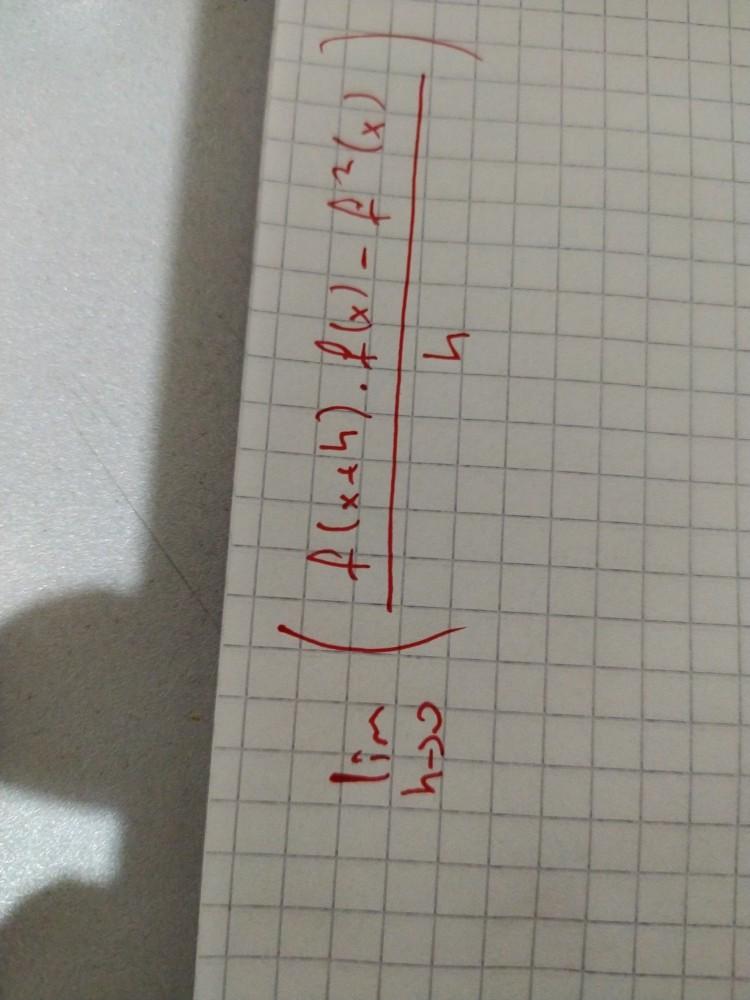 lim h→0 ( f(x+h) . f(x) - f²(x) / h )